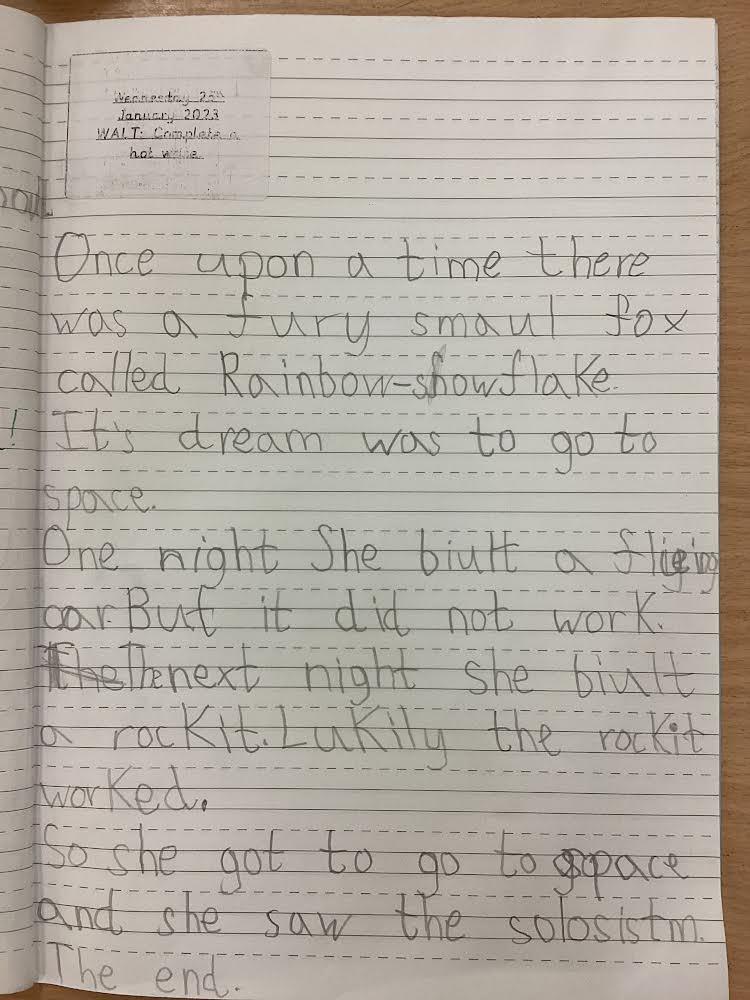 Wednesday 25th
January 2023
WALT: Complete a
hot write.
Once upon a time there
was a fury smaul fox
called Rainbow-snowflake.
It's dream was to go to
space.
One night She biult a fliging
car. But it did not work.
The The next night she biult
a rocKit. LuKily the rocKit
worKed.
So she got to go to space
and she saw the solosistm.
The end.
!